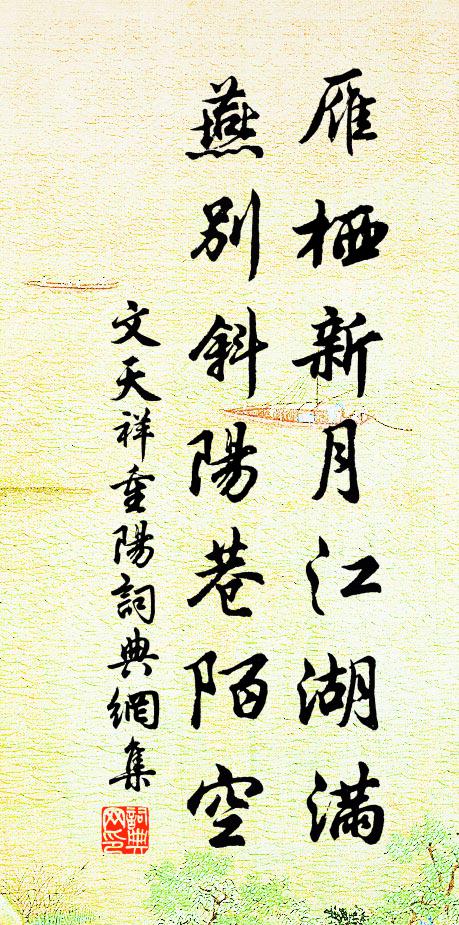 雁栖新月江湖滿
燕別斜陽巷陌空
文天祥重陽詞典網集
詞典網印